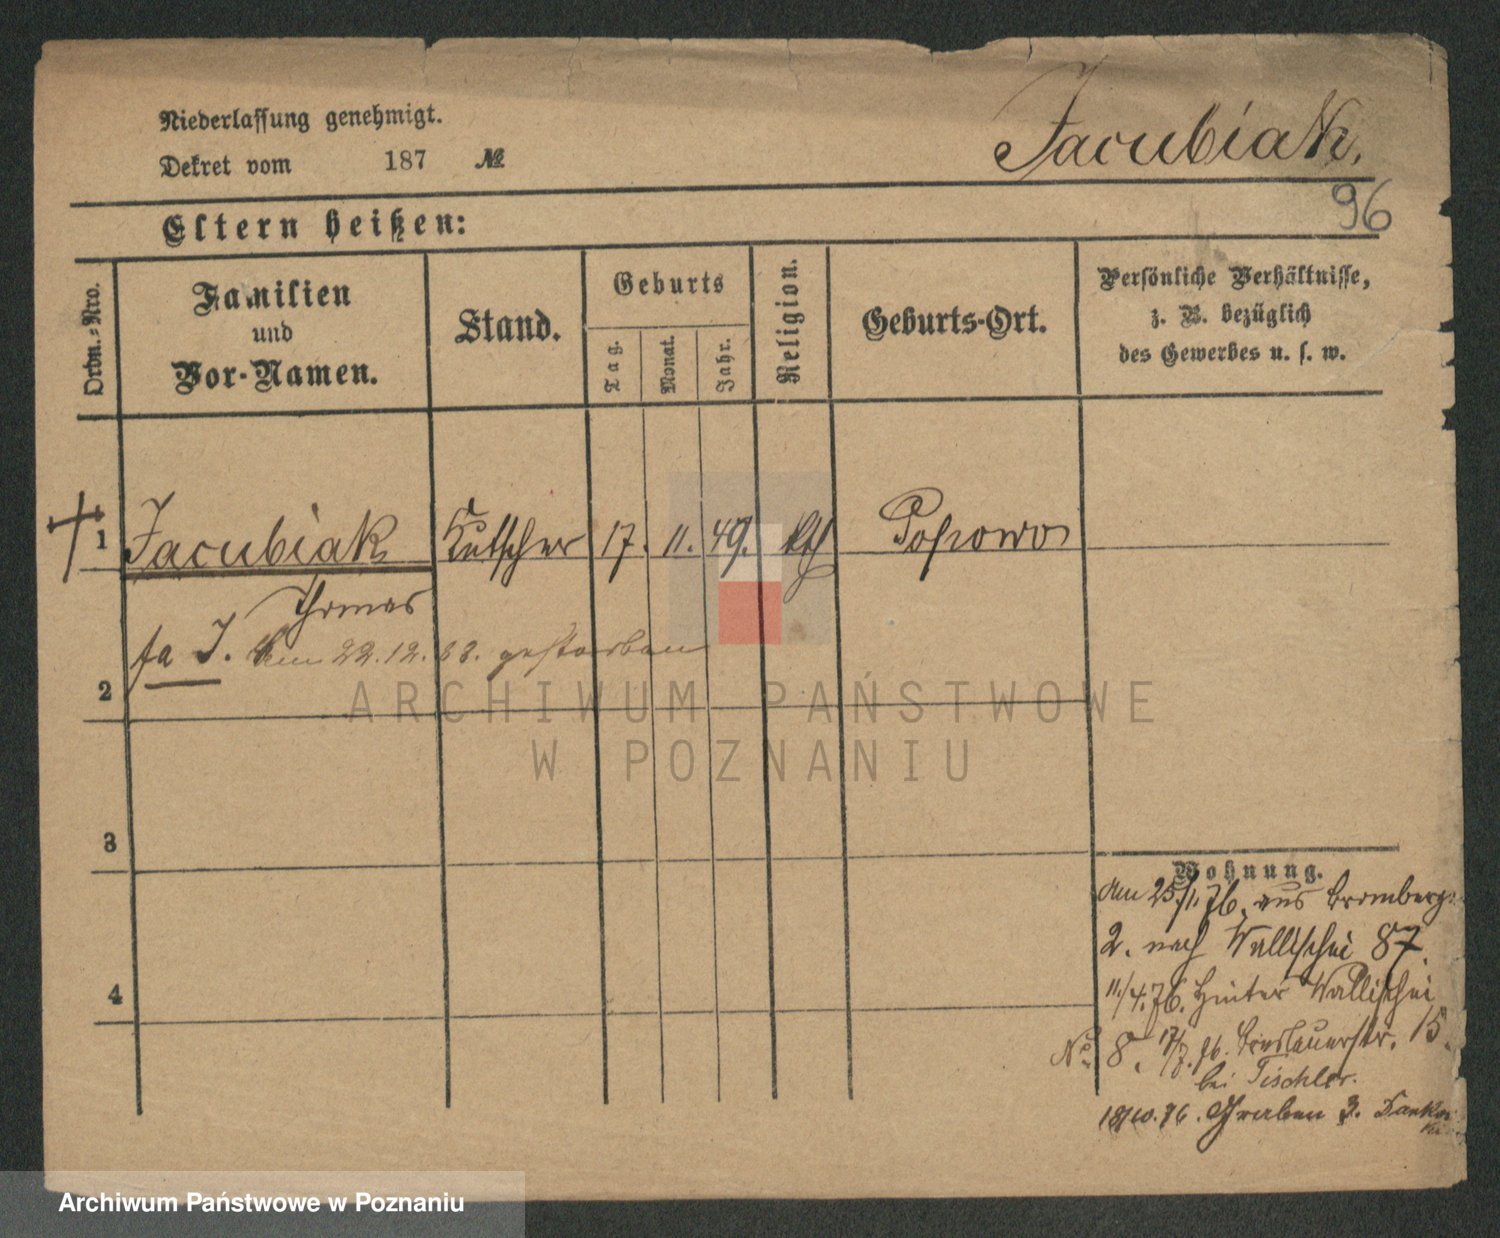 Niederlassung genehmigt.
Dekret vom 187 №
Jacubiak.
96
Eltern heißen:
Ordn.-Nro.
Familien
und
Vor-Namen.
Stand.
Geburts
Tag.
Monat.
Jahr.
Religion.
Geburts-Ort.
Persönliche Verhältnisse,
z. B. bezüglich
des Gewerbes u. s. w.
1 Jacubiak Kutscher 17. 11. 49. kth Popowo
Thomas
J. 22.12. gestorben
2
3
4
Wohnung.
Am 25/1.76. aus Bromberg
2. nach Wallischei 87.
11./4.76. Hinter Wallischei
No 8. 17/7.76. Breslauerstr. 15.
bei Tischler.
18/10.76. Graben 3.
ARCHIWUM PAŃSTWOWE
W POZNANIU
Archiwum Państwowe w Poznaniu